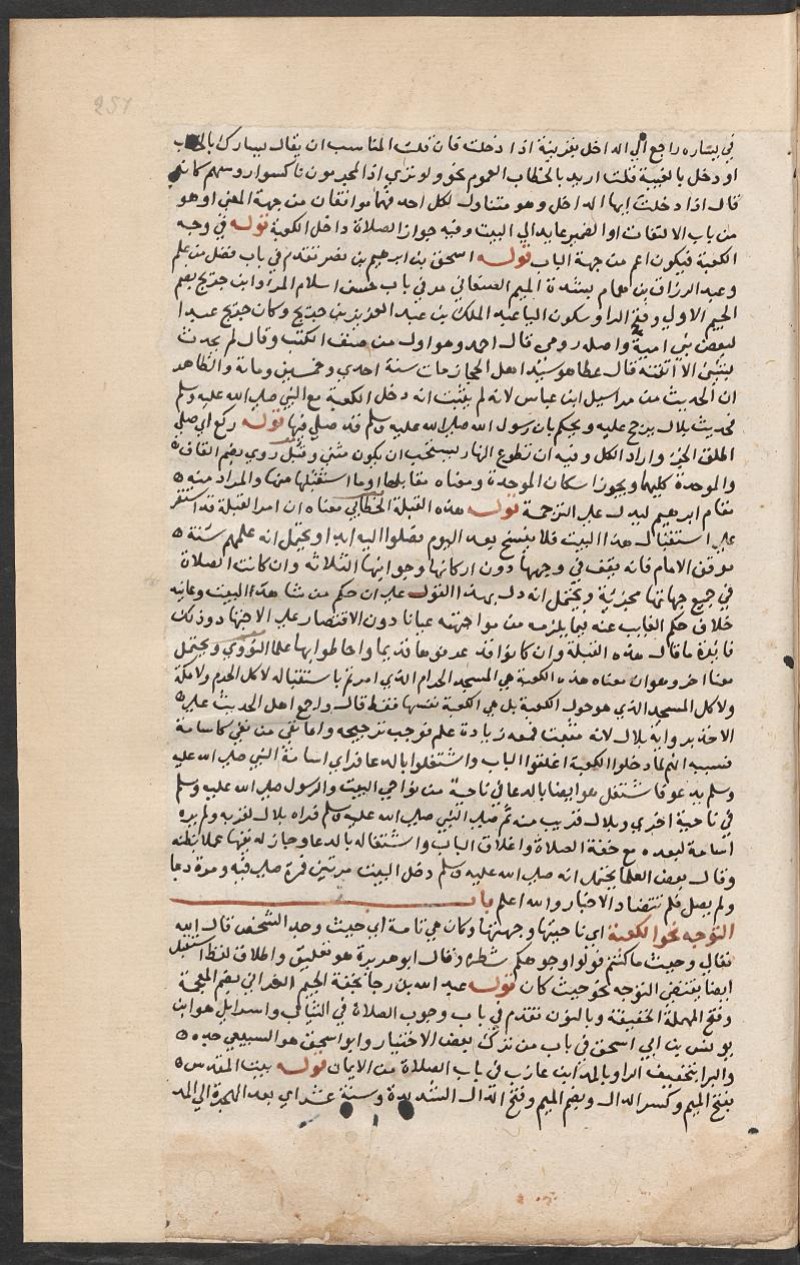 257
في يساره راجع الي الداخل بقرينة اذا دخلت فان قلت المناسب ان يقال يسارك بالخطاب
او دخل بالغيبة قلت اريد بالخطاب العموم نحو ولو تري اذ المجرمون ناكسوا روسهم كانه
قال اذا دخلت ايها الداخل وهو متناول لكل احد فهما موافقان من جهة المعني او هو
من باب الالتفات او الضمير عايد الي البيت وفيه جواز الصلاة داخل الكعبة قوله في وجه
الكعبة فيكون اعم من جهة الباب قوله اسحق بن ابرهيم بن نصر تقدم في باب فضل من علم
وعبد الرزاق بن همام بتشدة الميم الصنعاني مر في باب حسن اسلام المرء وابن جريج بضم
الجيم الاولي وفتح الرا وسكون اليا عبد الملك بن عبد العزيز بن جريج وكان جريج عبدا
لبعض بني امية واصله رومي قال احمد وهو اول من صنف الكتب وقال لم يحدث
بشئ الا اتقنه قال عطا هو سيد اهل الحجاز مات سنة احدي وخمسين ومائة والظاهر
ان الحديث من مراسيل ابن عباس لانه لم يثبت انه دخل الكعبة مع النبي صلي الله عليه وسلم
فحديث بلال يرجح عليه ويحكم بان رسول الله صلي الله عليه وسلم قد صلي فيها قوله ركع اي صلي
اطلق الجزء واراد الكل وفيه ان تطوع النهار يستحب ان يكون مثني وقبل روي بضم القاف
والموحدة كليهما ويجوز اسكان الموحدة ومعناه مقابلها او ما استقبلها منها والمراد منه
مقام ابرهيم ليدل علي الترجمة قوله هذه القبلة الخطابي معناه ان امر القبلة قد استقر
علي استقبال هذا البيت فلا ينسخ بعد اليوم فصلوا اليه ابدا ويحتمل انه علمهم سنة
موقف الامام فانه يقف في وجهها دون اركانها وجوانبها الثلاثه وان كانت الصلاة
في جميع جهاتها مجزية ويحتمل انه دل بهذا القول علي ان حكم من شاهد البيت وعاينه
خلاف حكم الغايب عنه فيما يلزمه من مواجهته عيانا دون الاقتصار علي الاجتهاد وذلك
فائدة ما قال هذه القبلة وان كانوا قد عرفوها قديما واحاطوا بها علما النووي ويحتمل
معنا اخر وهو ان معناه هذه الكعبة هي المسجد الحرام الذي امرتم باستقباله لا كل الحرم ولا مكة
ولا كل المسجد الذي هو حول الكعبة بل هي الكعبة نفسها فقط قال واجمع اهل الحديث علي
الاخذ برواية بلال لانه مثبت فمعه زيادة علم فوجب ترجيحه واما نفي من نفي كاسامة
فسببه انهم لما دخلوا الكعبة اغلقوا الباب واشتغلوا بالدعا فراي اسامة النبي صلي الله عليه
وسلم يدعو فاشتغل هو ايضا بالدعا في ناحية من نواحي البيت والرسول صلي الله عليه وسلم
في ناحية اخري وبلال قريب منه ثم صلي النبي صلي الله عليه وسلم فراه بلال لقربه ولم يره
اسامة لبعده مع خفة الصلاة واغلاق الباب واشتغاله بالدعا وجاز له نفيها عملا بظنه
وقال بعض العلما يحتمل انه صلي الله عليه وسلم دخل البيت مرتين فمرة صلي فيه ومرة دعا
ولم يصل فلم تتضاد الاخبار والله اعلم باب
التوجه نحو الكعبة اي ناحيتها وجهتها وكان هي تامة اي حيث وجد الشخص قال الله
تعالي وحيث ما كنتم فولوا وجوهكم شطره وقال ابو هريرة هو تعليق واطلاق لفظ استقبل
ايضا يقتضي التوجه نحو حيث كان قوله عبد الله بن رجا بخفة الجيم الغداني بضم المعجمة
وفتح المهملة الخفيفة وبالنون تقدم في باب وجوب الصلاة في الثياب واسرايل هو ابن
يونس بن ابي اسحق في باب من ترك بعض الاختيار وابو اسحق هو السبيعي جده
والبرا بتخفيف الرا وبالمد ابن عازب في باب الصلاة من الايمان قوله بيت المقدس
بفتح الميم وكسر الدال وبضم الميم وفتح الدال الشديدة وستة عشر اي بعد الهجرة الي المد